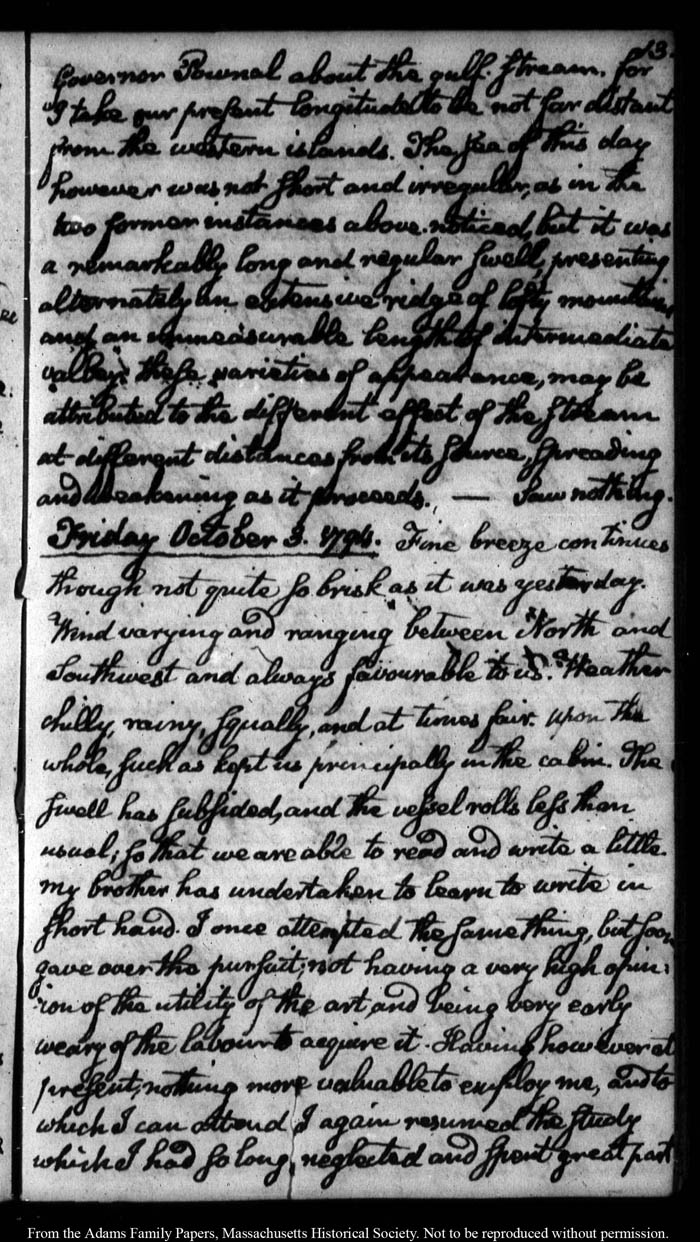 13.
Governor Pownal about the gulf-stream. for
I take our present longitude to be not far distant
from the western islands. The sea of this day
however was not short and irregular, as in the
two former instances above noticed, but it was
a remarkably long and regular swell, presenting
alternately an extensive ridge of lofty mountains
and an unmeasurable length of intermediate
valley. these varieties of appearance, may be
attributed to the different effect of the stream
at different distances from its source, spreading
and weakening as it proceeds. — Saw nothing.
Friday October 3. 1794. Fine breeze continues
though not quite so brisk as it was yesterday.
Wind varying and ranging between North and
Southwest and always favourable to us. Weather
chilly, rainy, squally, and at times fair. upon the
whole, such as kept us principally in the cabin. The
swell has subsided, and the vessel rolls less than
usual; so that we are able to read and write a little.
My brother has undertaken to learn to write in
short hand. I once attempted the same thing, but soon
gave over the pursuit; not having a very high opin:
ion of the utility of the art, and being very early
weary of the labour to acquire it. Having however at
present, nothing more valuable to employ me, and to
which I can attend I again resumed the study
which I had so long neglected and spent great part
From the Adams Family Papers, Massachusetts Historical Society. Not to be reproduced without permission.